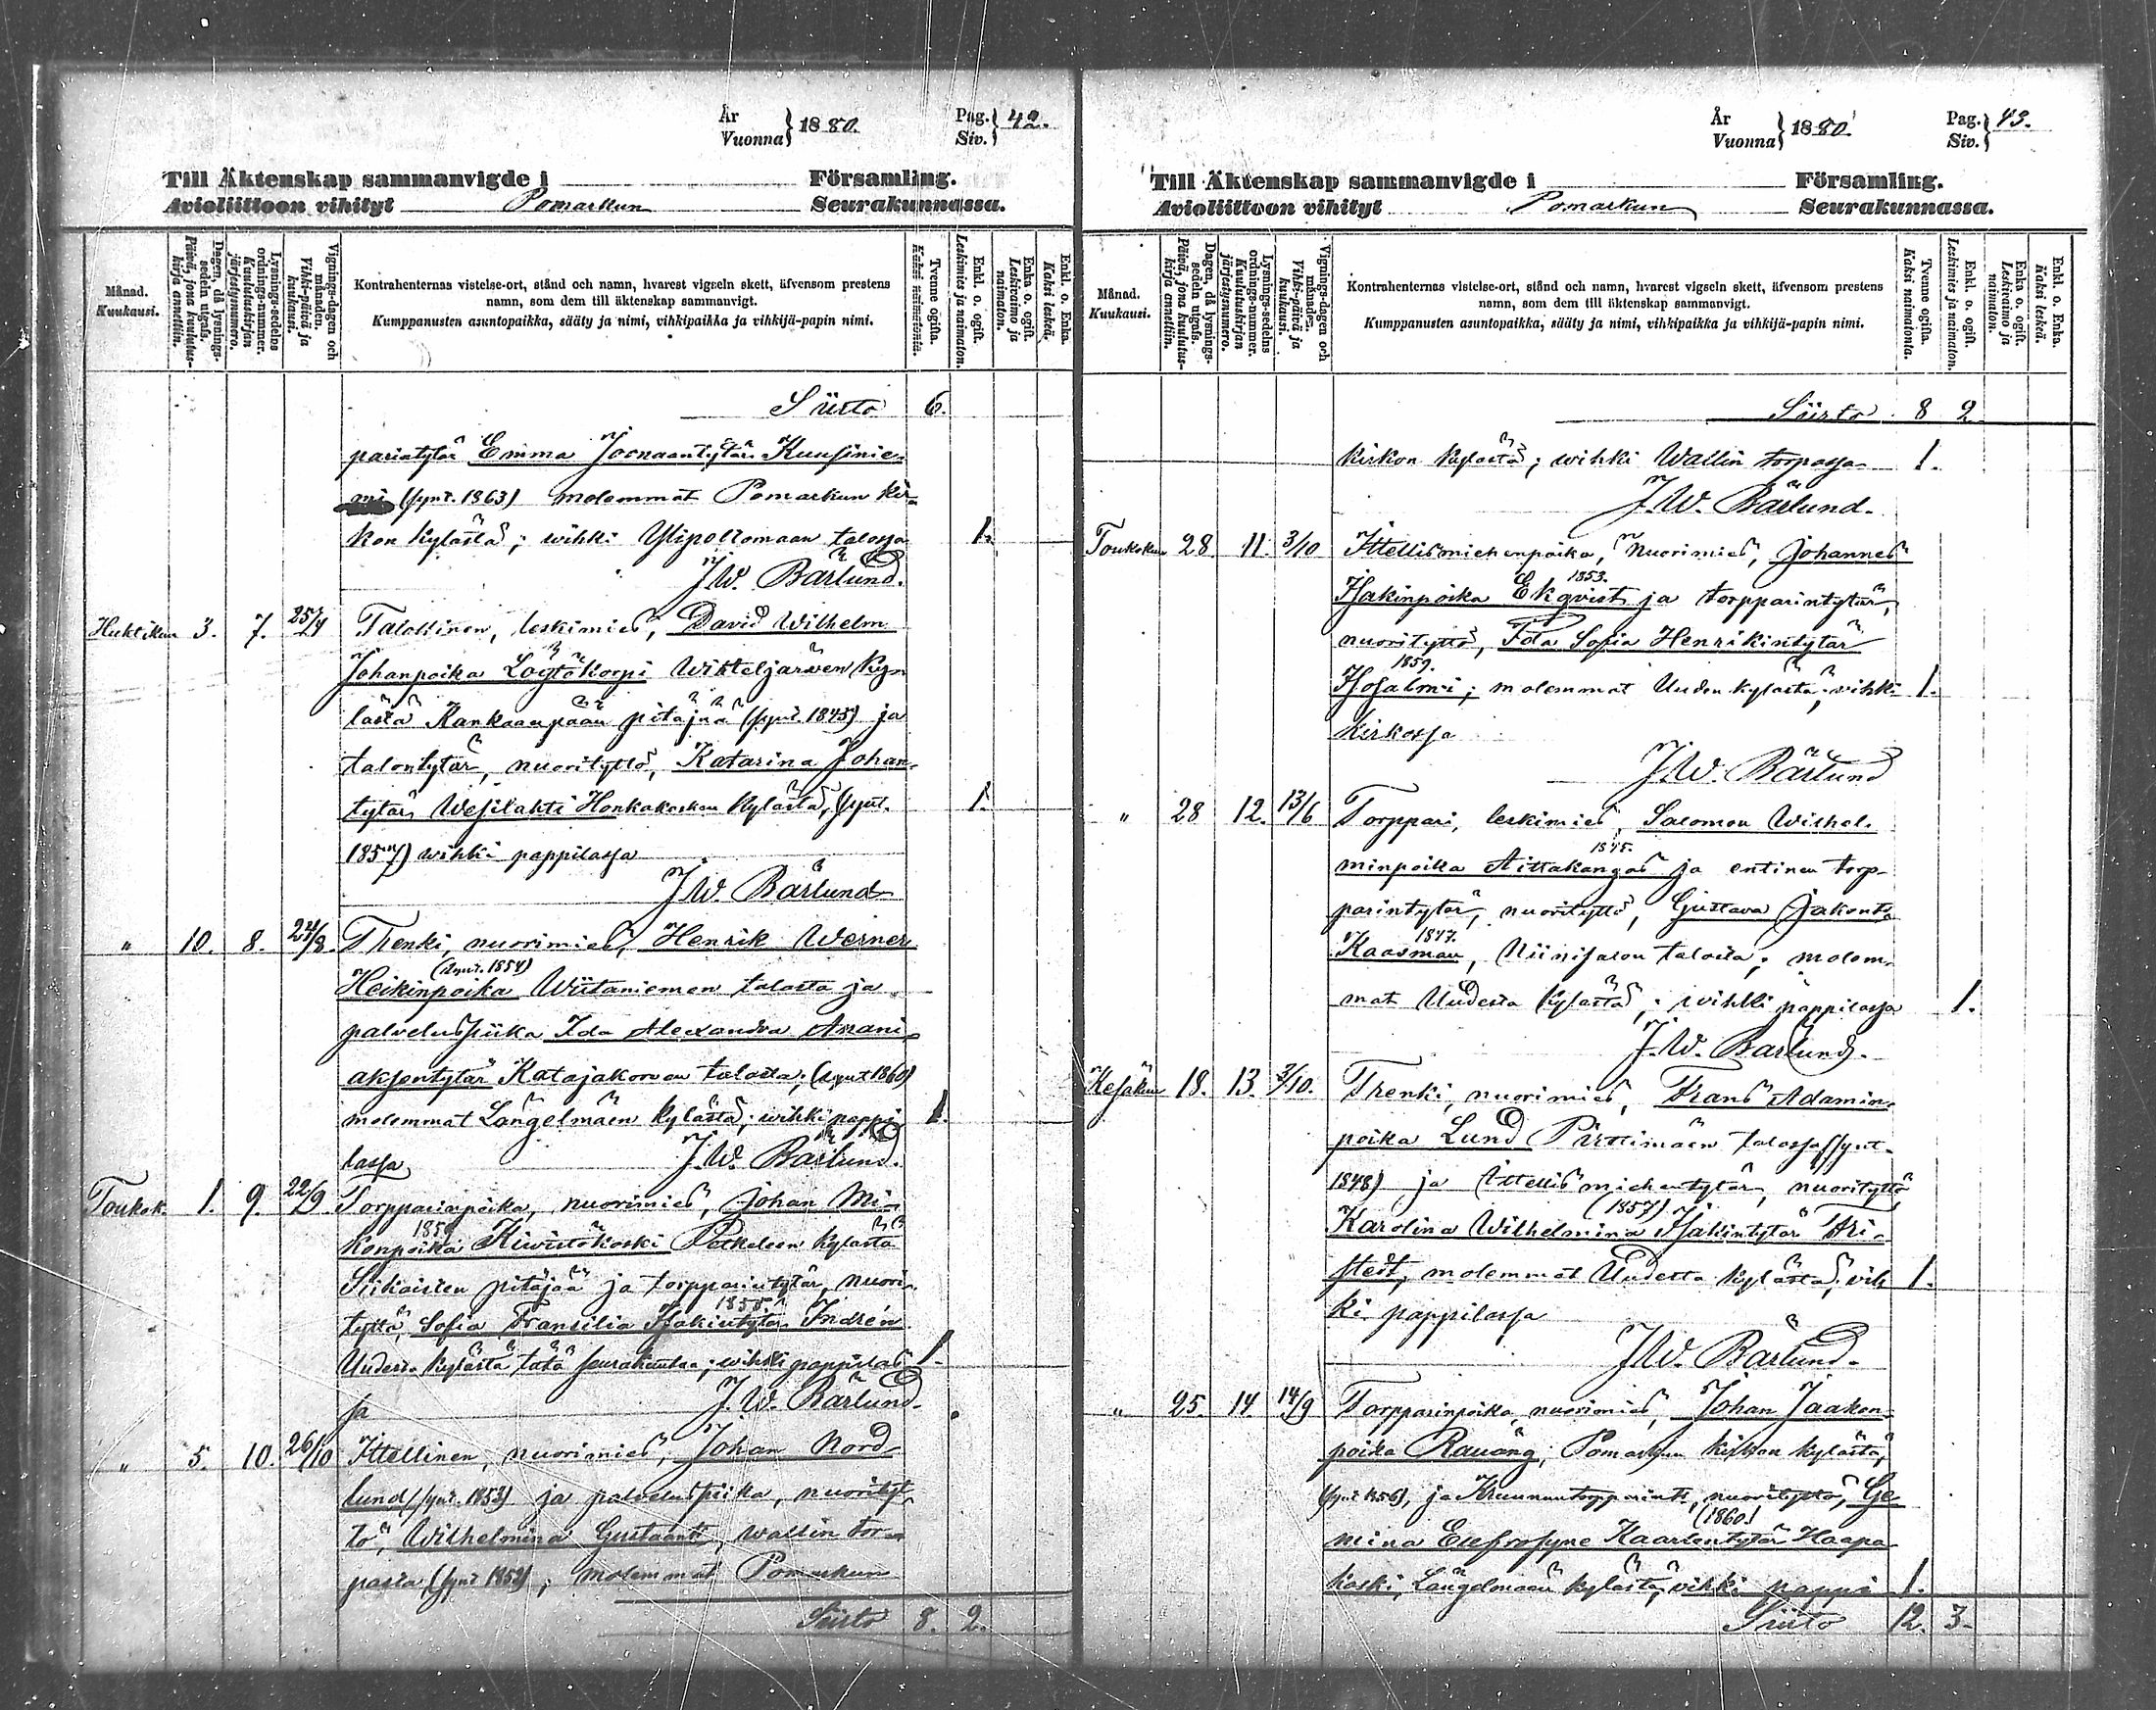 År
Vuonna } 1880.
Pag.
Siv. } 42.
Till Äktenskap sammanvigde i Församling.
Avioliittoon vihityt Pomarkun Seurakunnassa.
Månad.
Kuukausi.
Dagen, då lysnings-sedeln utgafs.
Päivä, jona kuulutus-kirja annettiin.
Lysnings-sedelns ordnings-nummer.
Kuulutuskirjan järjestynumero.
Vignings-dagen och månaden.
Vihki-päivä ja kuukausi.
Kontrahenternas vistelse-ort, stånd och namn, hvarest vigseln skett, äfvensom prestens
namn, som dem till äktenskap sammanvigt.
Kumppanusten asuntopaikka, sääty ja nimi, vihkipaikka ja vihkijä-papin nimi.
Tvenne ogifta.
Kaksi naimatonta.
Enkl. o. ogift.
Leskimies ja naimaton.
Enka o. ogift.
Leskivaimo ja naimaton.
Enkl. o. Enka.
Kaksi leskeä.
Siirto 6.
pariatytär Emma Joonaantytär Kuusinie-
mi (synt. 1863) molommat Pomarkun kir-
kon kylästä; wihki Ylipoltomaan talossa 1.
J.W. Bärlund.
Huhtikun 3. 7. 25/4 Talollinen, leskimies, David Wilhelm
Johanpoika Löytökorpi Wihteljärwen ky-
lästä Kankaanpään pitäjää (synt. 1845) ja
talontytär, nuorityttö, Katarina Johan-
tytär Wesilahti Honkakosken kylästä, (synt. 1.
1857) wihki pappilassa
J.W. Bärlund
" 10. 8. 24/8. Trenki, nuorimies, Henrik Werner
(synt. 1854)
Heikinpoika Wiitaniemen talosta ja
palveluspiika Ida Alexandra Anani-
aksentytär Katajakorvan talosta; (synt 1860)
molemmat Längelmäen kylästä; wihki pappi 1.
lassa J.W. Bärlund.
Toukok. 1. 9. 22/9 Torpparinpoika, nuorimies, Johan Mi-
1859
konpoika Kiwistökoski Petkeleen kylästä
Siikaisten pitäjää ja torpparintytär, nuori-
1855.
tyttö, Sofia Fransilia Isakintytär Indrén
Uudesta kylästä tätä seurakuntaa; wihki pappilas 1.
sa J.W. Bärlund.
" 5. 10. 26/10 Ittellinen, nuorimies, Johan Nord-
lund (synt. 1853) ja palveluspiika, nuorityt-
tö, Wilhelmina Gustaant, wallin tor-
pasta (synt 1852); molemmat Pomarkun
Siirto 8. 2.
År
Vuonna } 1880.
Pag.
Siv. } 43.
Till Äktenskap sammanvigde i Församling.
Avioliittoon vihityt Pomarkun Seurakunnassa.
Månad.
Kuukausi.
Dagen, då lysnings-sedeln utgafs.
Päivä, jona kuulutus-kirja annettiin.
Lysnings-sedelns ordnings-nummer.
Kuulutuskirjan järjestynumero.
Vignings-dagen och månaden.
Vihki-päivä ja kuukausi.
Kontrahenternas vistelse-ort, stånd och namn, hvarest vigseln skett, äfvensom prestens
namn, som dem till äktenskap sammanvigt.
Kumppanusten asuntopaikka, sääty ja nimi, vihkipaikka ja vihkijä-papin nimi.
Tvenne ogifta.
Kaksi naimatonta.
Enkl. o. ogift.
Leskimies ja naimaton.
Enka o. ogift.
Leskivaimo ja naimaton.
Enkl. o. Enka.
Kaksi leskeä.
Siirto 8 2
kirkon kylästä; wihki Wallin torpassa 1.
J.W. Bärlund.
Toukokun 28. 11. 3/10 Ittellismiehenpoika, Nuorimies, Johannes
1853.
Isakinpoika Ekqvist ja torpparintytär,
nuorityttö, Ida Sofia Henrikintytär
1859.
Isosalmi; molemmat Uuden kylästä; vihki 1.
kirkossa
J.W. Bärlund
" 28 12. 13/6 Torppari, leskimies, Salomon Wilhel-
1845.
minpoika Aittakangas ja entinen torp-
parintytär, nuorityttö, Gustava Jakonts
1847.
Kaasman, Niinisalon talosta; molem-
mat Uudesta kylästä; wihki pappilassa 1.
J.W. Bärlund.
Kesäkun 18. 13. 3/10. Trenki, nuorimies, Frans Adamin-
poika Lund Pirttimäen talossa (synt-
1848) ja ittellismiehentytär, nuorityttö
(1857)
Karolina Wilhelmina Isakintytär Fri-
stedt, molemmat Uudesta kylästä; vih 1.
ki pappilassa
J.W. Bärlund.
" 25. 14. 14/9 Torpparinpoika, nuorimies, Johan Jaakon-
poika Rauäng, Pomarkun kirkon kylästä,
(synt 1856), ja Kruununtorpparints, nuorityttö, Ge
(1860)
mina Eufrosyne Kaarlentytär Haapa-
koski, Längelmään kylästä; vihki pappi 1.
Siirto 12. 3.